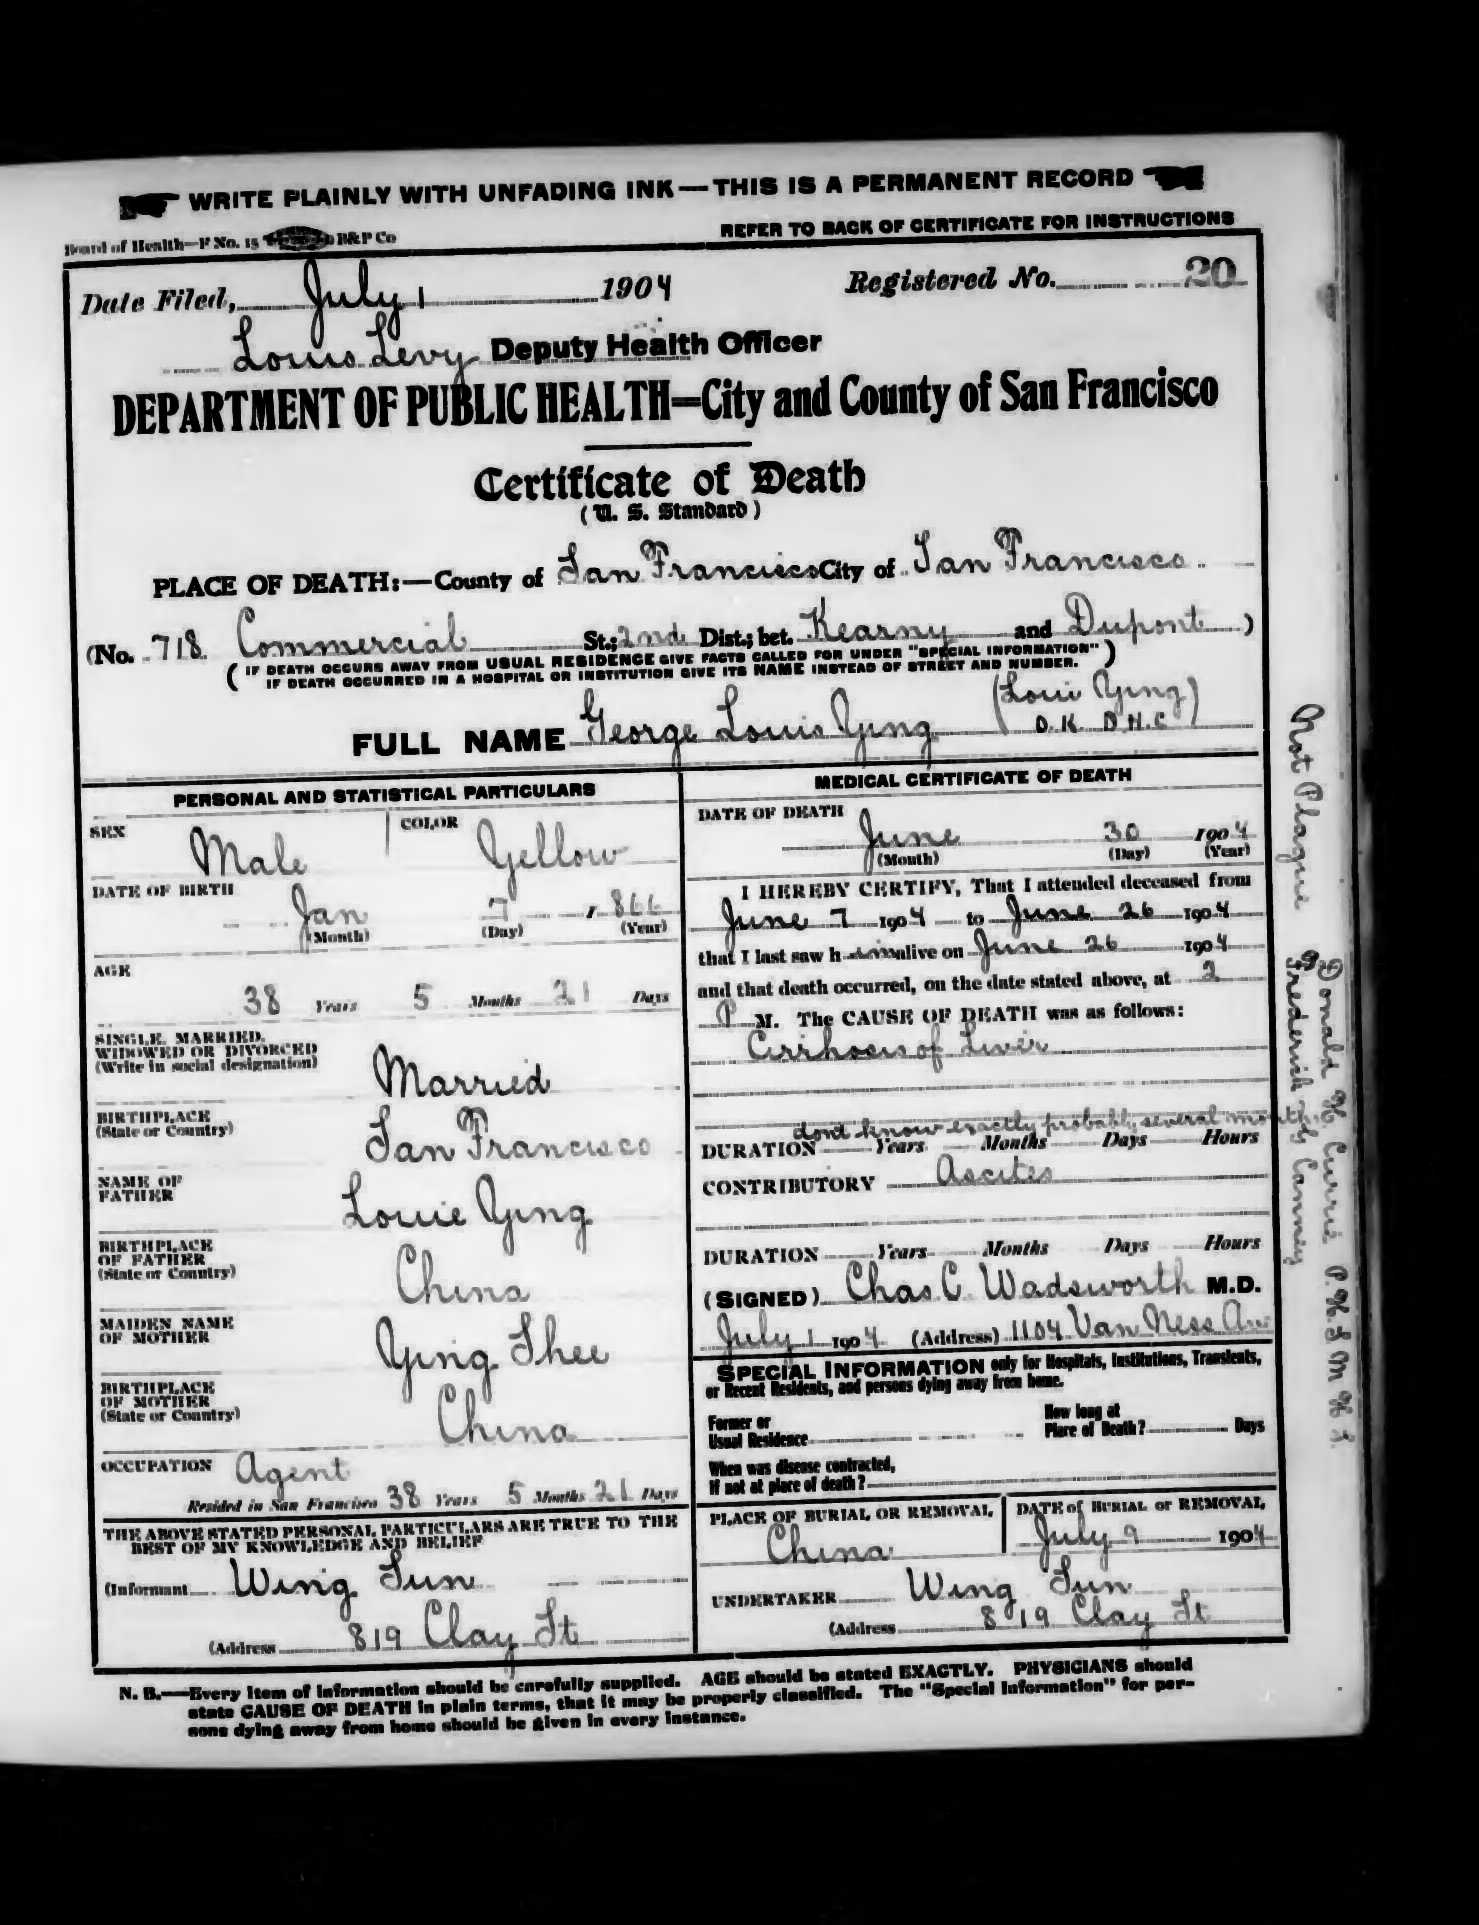 WRITE PLAINLY WITH UNFADING INK—THIS IS A PERMANENT RECORD
Board of Health—F No. 15 B&P Co
REFER TO BACK OF CERTIFICATE FOR INSTRUCTIONS
Date Filed, July 1 1904
Registered No. 20
Louis Levy Deputy Health Officer
DEPARTMENT OF PUBLIC HEALTH—City and County of San Francisco
Certificate of Death
(U. S. Standard)
PLACE OF DEATH:—County of San Francisco City of San Francisco
(No. 718 Commercial St.; 2nd Dist.; bet. Kearny and Dupont )
( IF DEATH OCCURS AWAY FROM USUAL RESIDENCE GIVE FACTS CALLED FOR UNDER "SPECIAL INFORMATION" )
IF DEATH OCCURRED IN A HOSPITAL OR INSTITUTION GIVE ITS NAME INSTEAD OF STREET AND NUMBER.
(Loui Ying)
FULL NAME George Louis Ying O.K. D.H.C
PERSONAL AND STATISTICAL PARTICULARS
SEX Male
COLOR Yellow
DATE OF BIRTH
Jan 7 , 1866
(Month) (Day) (Year)
AGE
38 Years 5 Months 21 Days
SINGLE, MARRIED,
WIDOWED OR DIVORCED
(Write in social designation)
Married
BIRTHPLACE
(State or Country)
San Francisco
NAME OF
FATHER
Louie Ying
BIRTHPLACE
OF FATHER
(State or Country)
China
MAIDEN NAME
OF MOTHER
Ying Shee
BIRTHPLACE
OF MOTHER
(State or Country)
China
OCCUPATION Agent
Resided in San Francisco 38 Years 5 Months 21 Days
THE ABOVE STATED PERSONAL PARTICULARS ARE TRUE TO THE
BEST OF MY KNOWLEDGE AND BELIEF
(Informant Wing Sun
(Address 819 Clay St
MEDICAL CERTIFICATE OF DEATH
DATE OF DEATH
June 30 1904
(Month) (Day) (Year)
I HEREBY CERTIFY, That I attended deceased from
June 7 1904 to June 26 1904
that I last saw him alive on June 26 1904
and that death occurred, on the date stated above, at 2
P M. The CAUSE OF DEATH was as follows:
Cirrhosis of Liver
dont know exactly probably several months
DURATION Years Months Days Hours
CONTRIBUTORY Ascites
DURATION Years Months Days Hours
(SIGNED) Chas C. Wadsworth M.D.
July 1 1904 (Address) 1104 Van Ness Av
SPECIAL INFORMATION only for Hospitals, Institutions, Transients,
or Recent Residents, and persons dying away from home.
Former or
Usual Residence
How long at
Place of Death? Days
When was disease contracted,
If not at place of death?
PLACE OF BURIAL OR REMOVAL
China
DATE of BURIAL or REMOVAL
July 9 1904
UNDERTAKER Wing Sun
(Address 819 Clay St
N. B.—Every item of information should be carefully supplied. AGE should be stated EXACTLY. PHYSICIANS should
state CAUSE OF DEATH in plain terms, that it may be properly classified. The "Special Information" for per-
sons dying away from home should be given in every instance.
Not Plague
Donald H Currie P.H.& M H S.
Frederick Canney